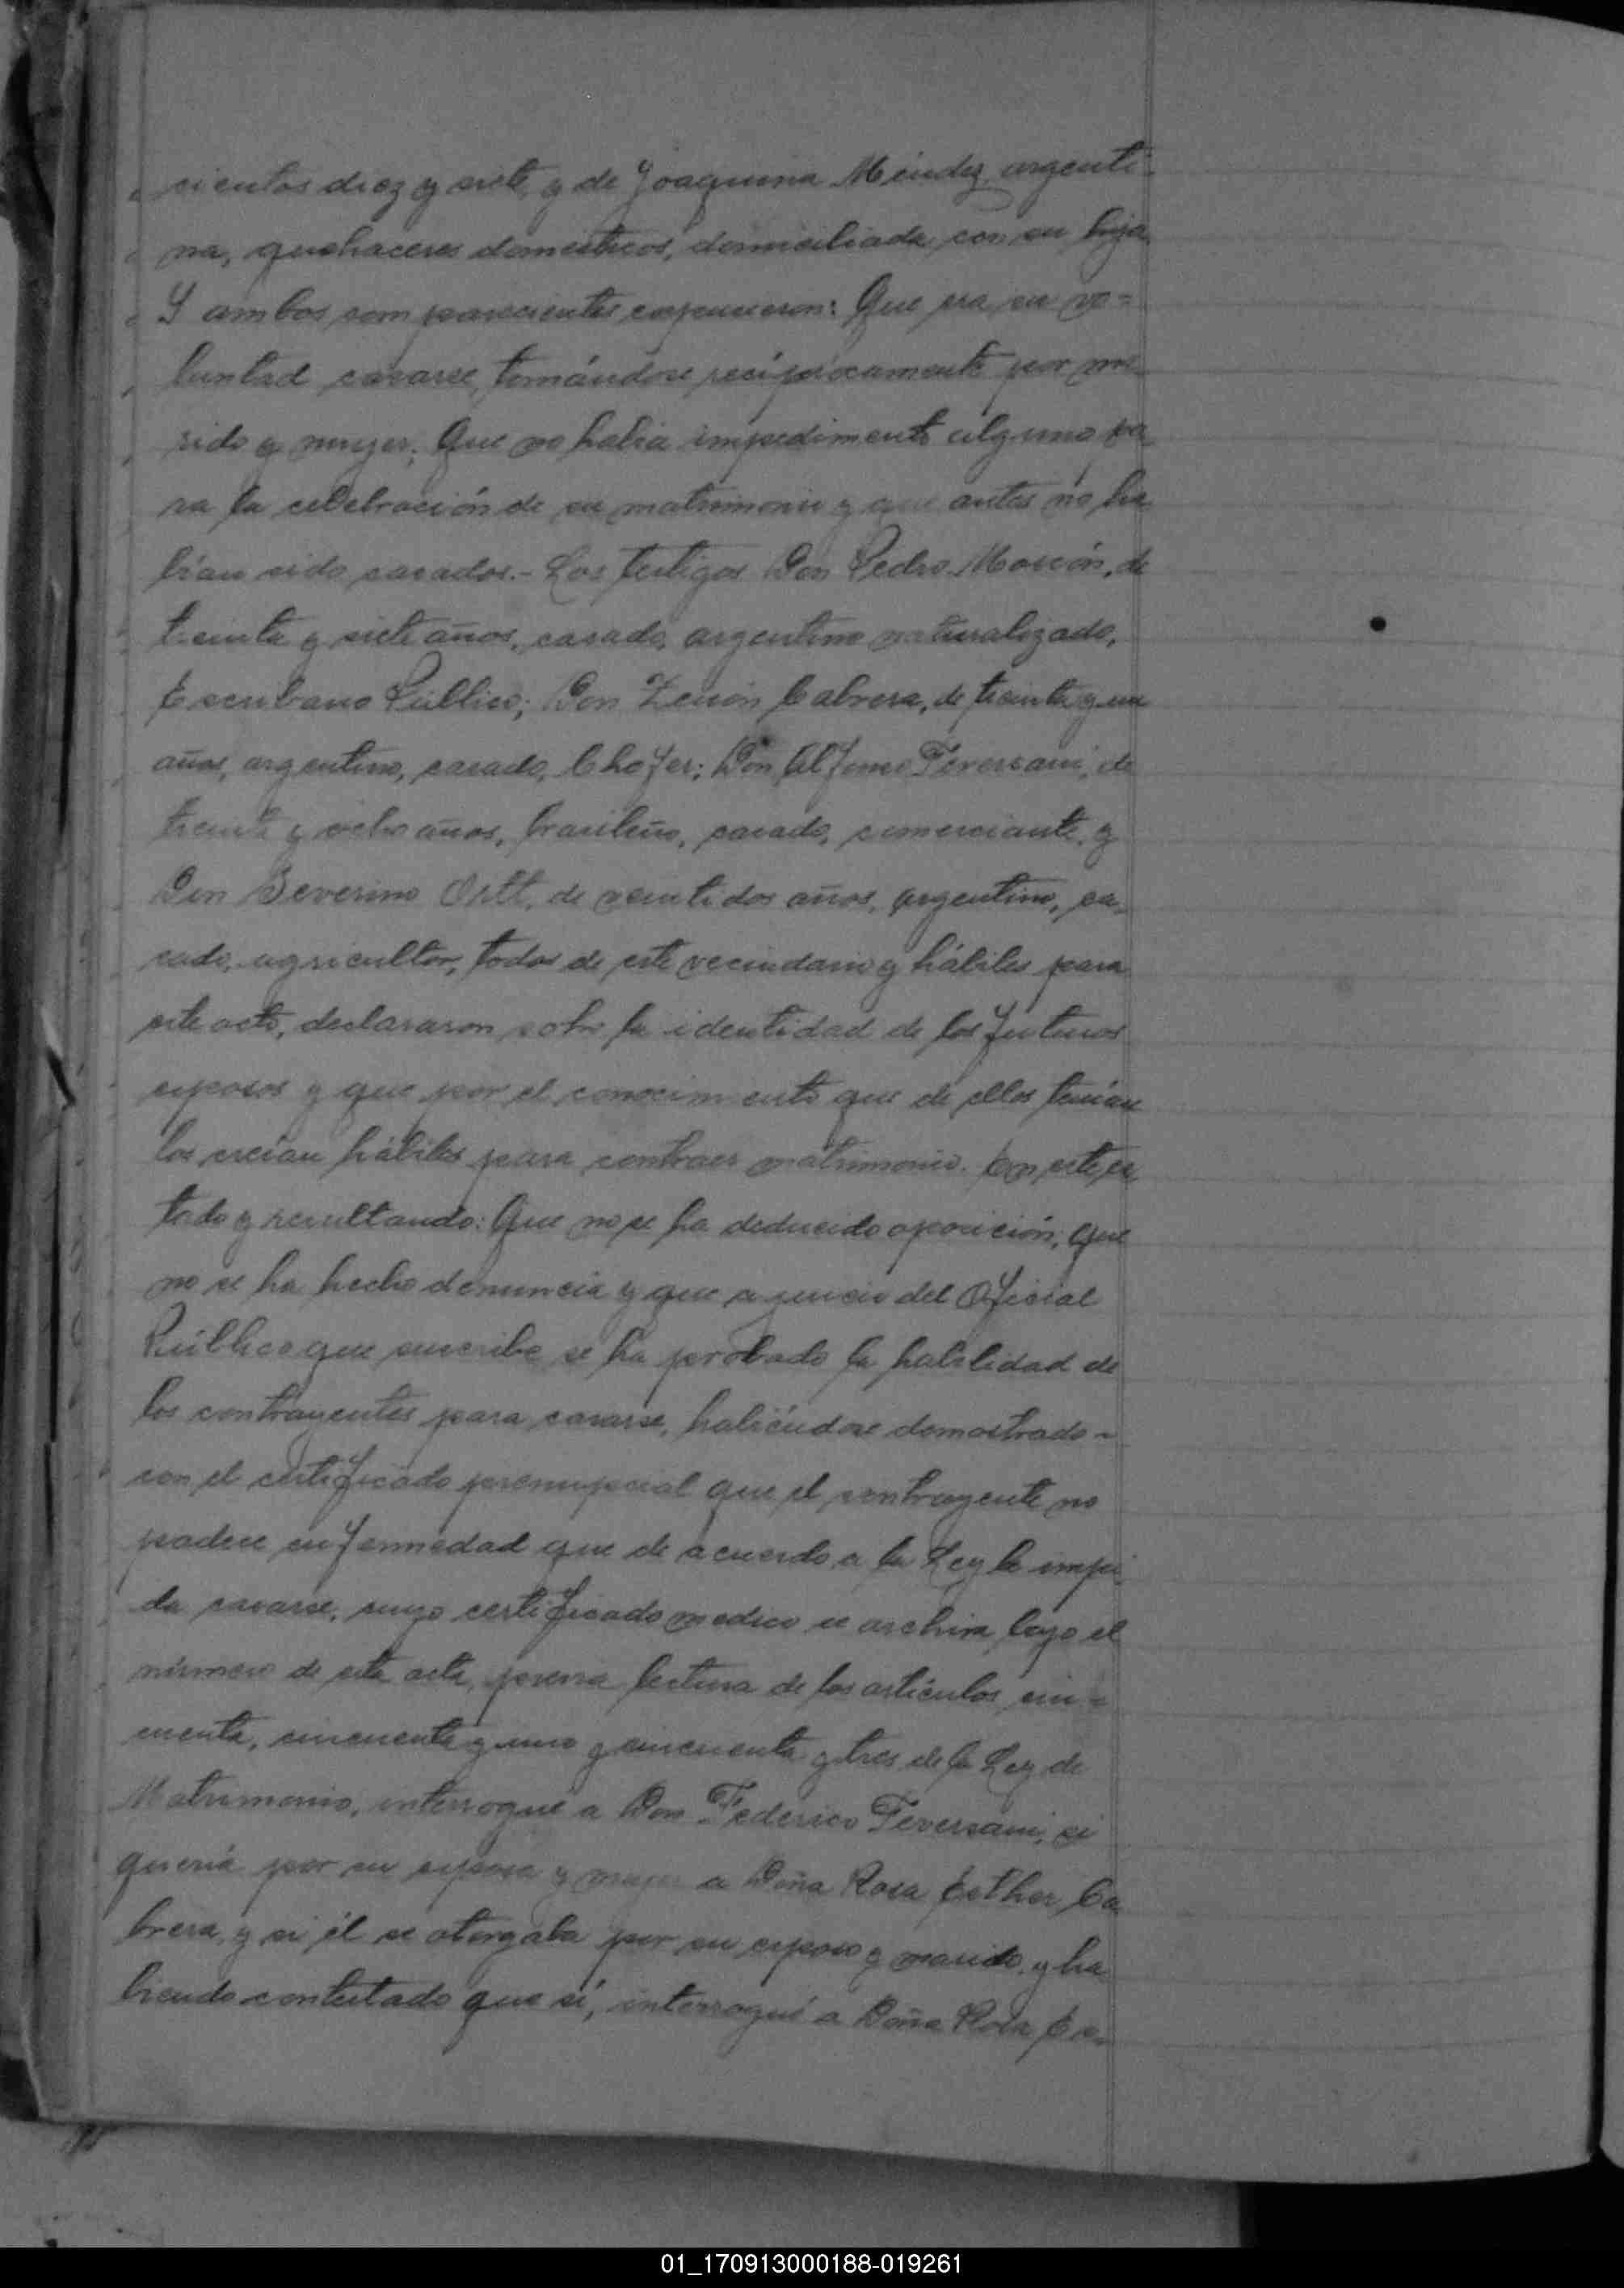 cientos diez y siete, y de Joaquina Méndez, argenti-
na, quehaceres domesticos, domiciliada con su hija.
Y ambos comparecientes expusieron: Que era su vo-
luntad casarse, tomándose recíprocamente por ma-
rido y mujer; Que no habia impedimento alguno pa-
ra la celebración de su matrimonio y que antes no ha-
bían sido casados.- Los testigos Don Pedro Moscón, de
treinta y siete años, casado, argentino naturalizado,
Escribano Público; Don Zenón Cabrera, de treinta y un
años, argentino, casado, Chofer; Don Alfonso Teversani, de
treinta y ocho años, brasileño, casado, comerciante, y
Don Severino Ortt, de veintidos años, argentino, ca-
sado, agricultor, todos de este vecindario y hábiles para
este acto, declararon sobre la identidad de los futuros
esposos y que por el conocimiento que de ellos tenían
los creían hábiles para contraer matrimonio. En este es-
tado y resultando: Que no se ha deducido oposición; que
no se ha hecho denuncia y que a juicio del Oficial
Público que suscribe se ha probado la habilidad de
los contrayentes para casarse, habiéndose demostrado -
con el certificado prenupcial que el contrayente no
padece enfermedad que de acuerdo a la Ley le impi-
da casarse, cuyo certificado medico se archiva bajo el
número de esta acta, previa lectura de los artículos cin-
cuenta, cincuenta y uno y cincuenta y tres de la Ley de
Matrimonio, interrogué a Don Federico Teversani, si
quería por su esposa y mujer a Doña Rosa Esther Ca-
brera, y si él se otorgaba por su esposo y marido, y ha
biendo contestado que sí, interrogué a Doña Rosa Es-
01_170913000188-019261